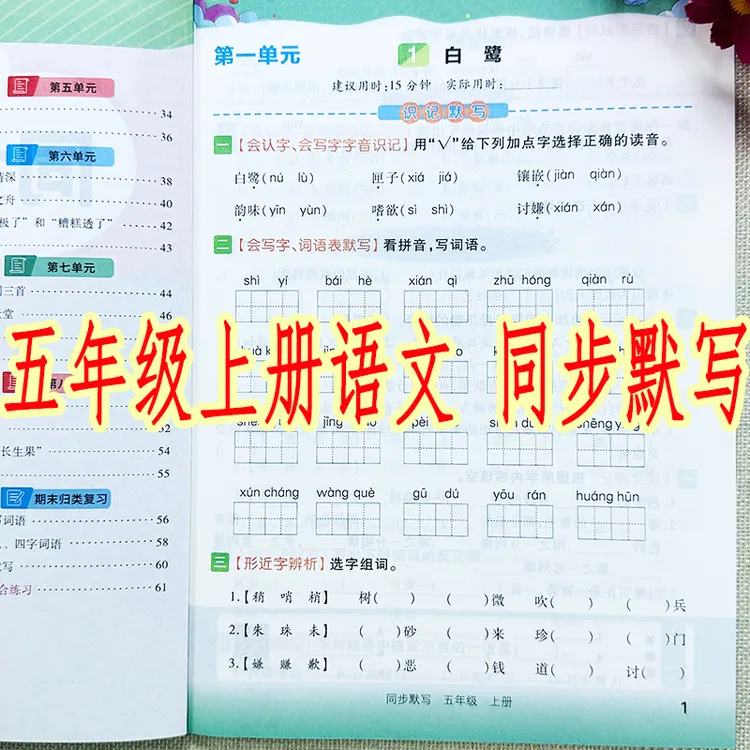 第五单元
34
36
第六单元
情深 38
之舟 40
极了”和“糟糕透了” 42
43
第七单元
司三首 44
天堂 46
52
54
长生果” 55
期末归类复习
写词语 56
、四字词语 58
默写 60
合练习 61
第一单元
1 白鹭
建议用时:15分钟 实际用时:
识记默写
一【会认字、会写字字音识记】用“√”给下列加点字选择正确的读音。
白鹭(nú lù) 匣子(xiá jiá) 镶嵌(jiàn qiàn)
韵味(yīn yùn) 嗜欲(sì shì) 讨嫌(xián xán)
二【会写字、词语表默写】看拼音,写词语。
shì yí bái hè xián qì zhū hóng qiàn rù
五年级上册语文 同步默写
pèi
xún cháng wàng què gū dú yōu rán huáng hūn
三【形近字辨析】选字组词。
1.【稍 哨 梢】 树( ) ( )微 吹( ) ( )兵
2.【朱 珠 未】 ( )砂 ( )来 珍( ) ( )门
3.【嫌 赚 歉】 ( )恶 ( )钱 道( ) 讨( )
同步默写 五年级 上册
1